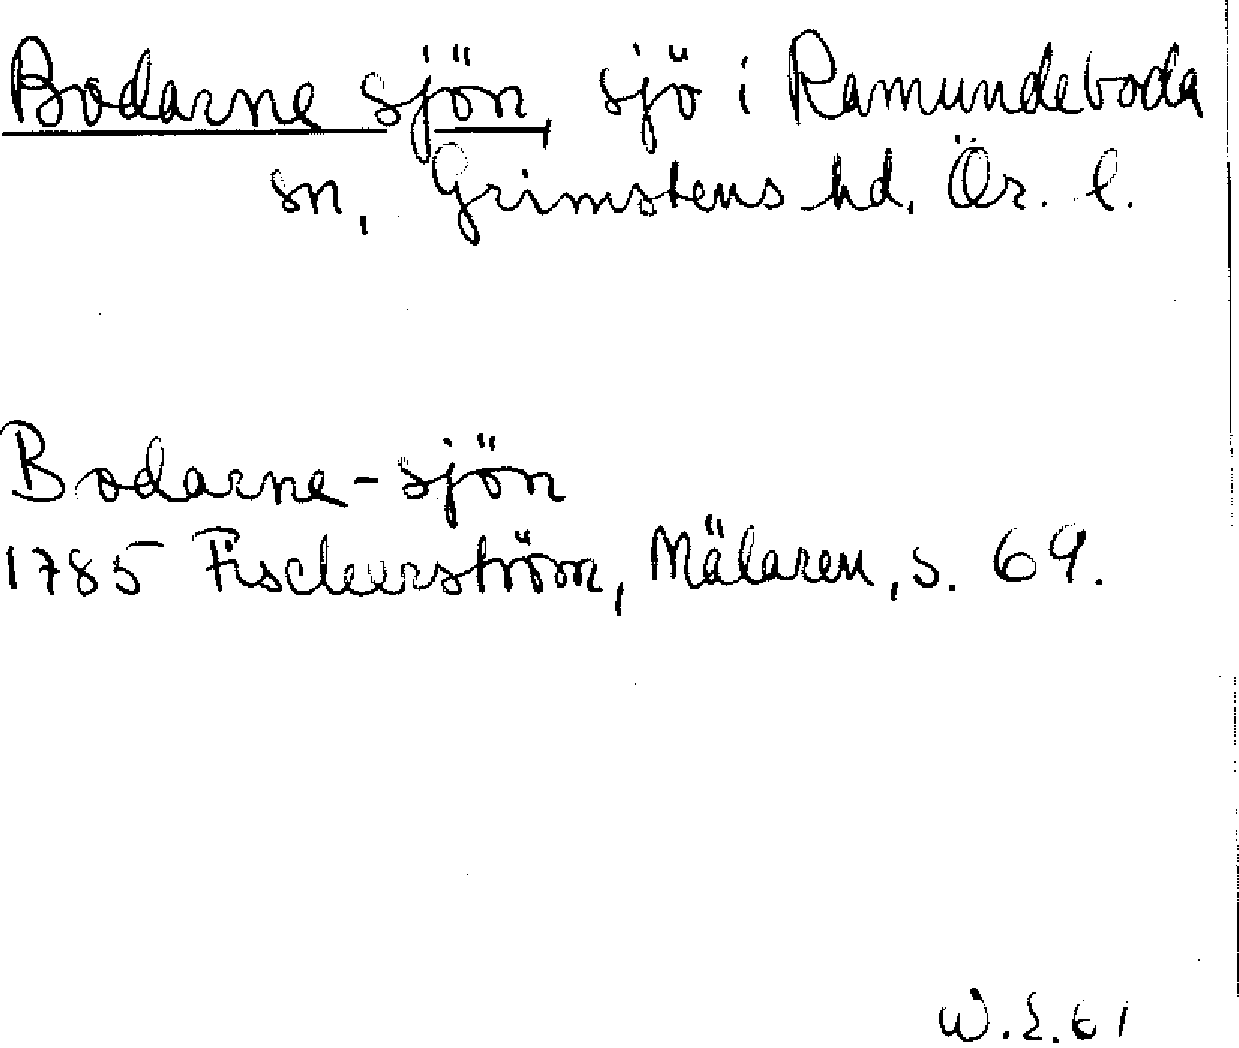 Bodarne sjön, sjö i Ramundeboda
sn, Grimstens hd, Ör. l.
Bodarne-sjön
1785 Fischerström, Mälaren, s. 69.
W.E.61